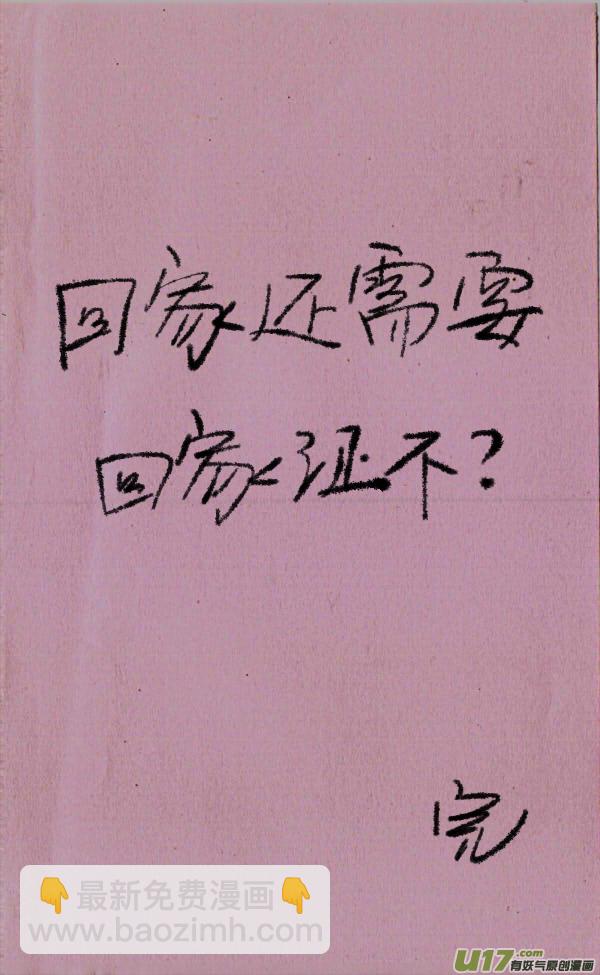 回家还需要
回家证不?
完
👇最新免费漫画👇
www.baozimh.com
U17.com
有妖气原创漫画